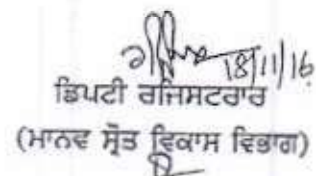 18/11/16
ਡਿਪਟੀ ਰਜਿਸਟਰਾਰ
(ਮਾਨਵ ਸ੍ਰੋਤ ਵਿਕਾਸ ਵਿਭਾਗ)